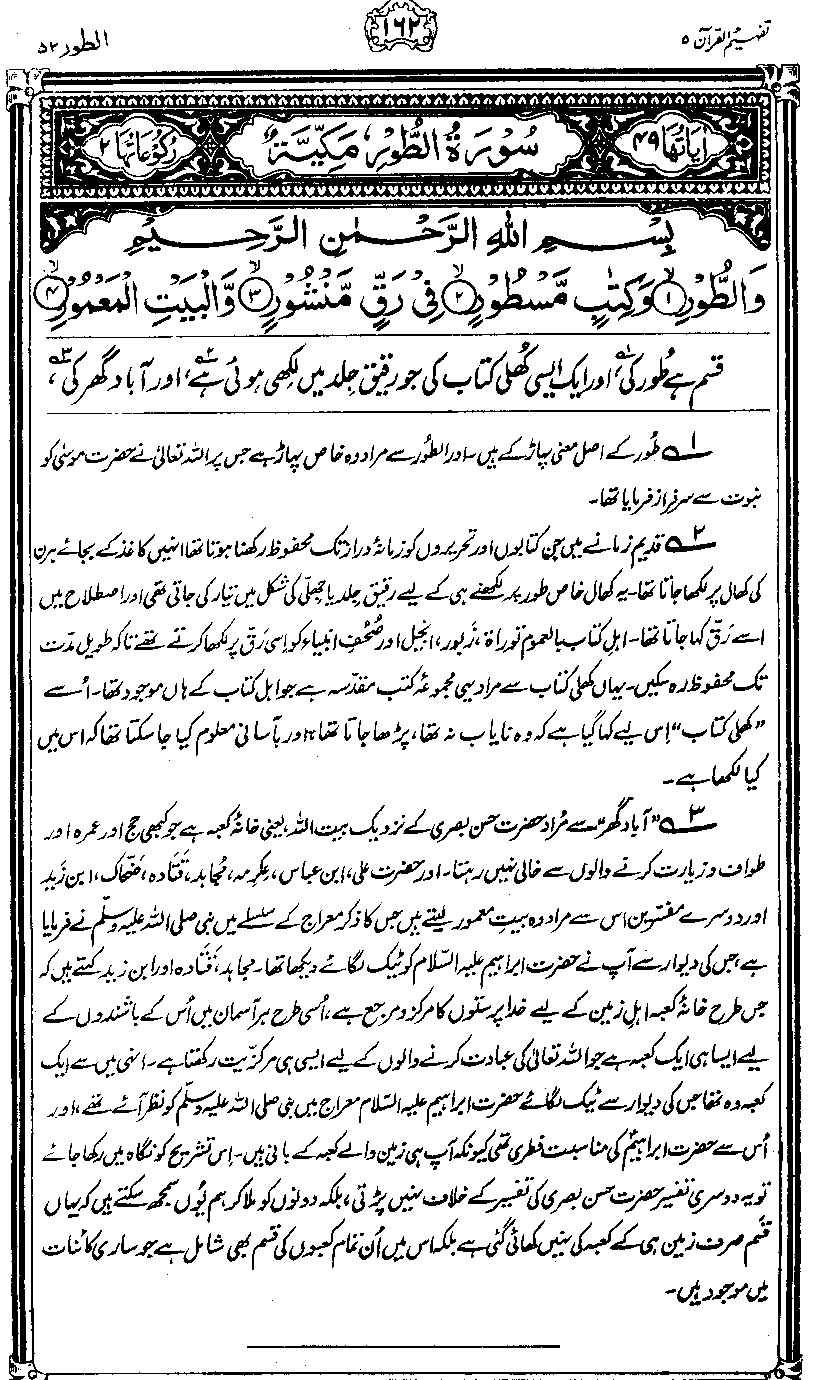 تفہیم القرآن ۵
۱۶۲
الطور ۵۲
اٰیَاتُهَا ۴۹
سُوْرَةُ الطُّوْرِ مَكِّيَّةٌ
رُكُوْعَاتُهَا ۲
بِسْمِ اللّٰهِ الرَّحْمٰنِ الرَّحِيْمِ
وَالطُّوْرِۙ ۱ وَكِتٰبٍ مَّسْطُوْرٍۙ ۲ فِیْ رَقٍّ مَّنْشُوْرٍۙ ۳ وَّالْبَيْتِ الْمَعْمُوْرِۙ ۴
قسم ہے طُور کی۱، اور ایک ایسی کھُلی کتاب کی جو رقیق جِلد میں لکھی ہوئی ہے۲، اور آباد گھر کی۳،
۱ طُور کے اصل معنی پہاڑ کے ہیں۔ اور الطُّور سے مراد وہ خاص پہاڑ ہے جس پر اللہ تعالیٰ نے حضرت موسیٰ کو
نبوت سے سرفراز فرمایا تھا۔
۲ قدیم زمانے میں جن کتابوں اور تحریروں کو زمانۂ دراز تک محفوظ رکھنا ہوتا تھا انہیں کاغذ کے بجائے ہرن
کی کھال پر لکھا جاتا تھا۔ یہ کھال خاص طور پر لکھنے ہی کے لیے رقیق جلد یا جھلّی کی شکل میں تیار کی جاتی تھی اور اصطلاح میں
اسے رَقّ کہا جاتا تھا۔ اہلِ کتاب بالعموم توراۃ، زَبور، انجیل اور صُحُفِ انبیاء کو اِسی رَقّ پر لکھا کرتے تھے تاکہ طویل مدّت
تک محفوظ رہ سکیں۔ یہاں کھُلی کتاب سے مراد یہی مجموعۂ کتب مقدّسہ ہے جو اہل کتاب کے ہاں موجود تھا۔ اُسے
”کھُلی کتاب“ اِس لیے کہا گیا ہے کہ وہ نایاب نہ تھا، پڑھا جاتا تھا، اور بآسانی معلوم کیا جا سکتا تھا کہ اس میں
کیا لکھا ہے۔
۳ ”آباد گھر“ سے مُراد حضرت حسن بصری کے نزدیک بیت اللہ، یعنی خانۂ کعبہ ہے جو کبھی حج اور عمرہ اور
طواف و زیارت کرنے والوں سے خالی نہیں رہتا۔ اور حضرت علی، ابن عباس، عِکرِمہ، مُجاہد، قَتَادہ، ضحّاک، ابن زَید
اور دوسرے مفسّرین اس سے مراد وہ بیت معمور لیتے ہیں جس کا ذکر معراج کے سلسلے میں نبی صلی اللہ علیہ وسلّم نے فرمایا
ہے، جس کی دیوار سے آپ نے حضرت ابراہیم علیہ السّلام کو ٹیک لگائے دیکھا تھا۔ مجاہد، قَتَادہ اور ابن زید کہتے ہیں کہ
جس طرح خانۂ کعبہ اہل زمین کے لیے خدا پرستوں کا مرکز و مرجع ہے، اُسی طرح ہر آسمان میں اُس کے باشندوں کے
لیے ایسا ہی ایک کعبہ ہے جو اللہ تعالیٰ کی عبادت کرنے والوں کے لیے ایسی ہی مرکزیّت رکھتا ہے۔ انہی میں سے ایک
کعبہ وہ تھا جس کی دیوار سے ٹیک لگائے حضرت ابراہیم علیہ السّلام معراج میں نبی صلی اللہ علیہ وسلّم کو نظر آئے تھے، اور
اُس سے حضرت ابراہیمؑ کی مناسبت فطری تھی کیونکہ آپ ہی زمین والے کعبہ کے بانی ہیں۔ اِس تشریح کو نگاہ میں رکھا جائے
تو یہ دوسری تفسیر حضرت حسن بصری کی تفسیر کے خلاف نہیں پڑتی، بلکہ دونوں کو ملا کر ہم یُوں سمجھ سکتے ہیں کہ یہاں
قَسم صرف زمین ہی کے کعبہ کی نہیں کھائی گئی ہے بلکہ اس میں اُن تمام کعبوں کی قسم بھی شامل ہے جو ساری کائنات
میں موجود ہیں۔